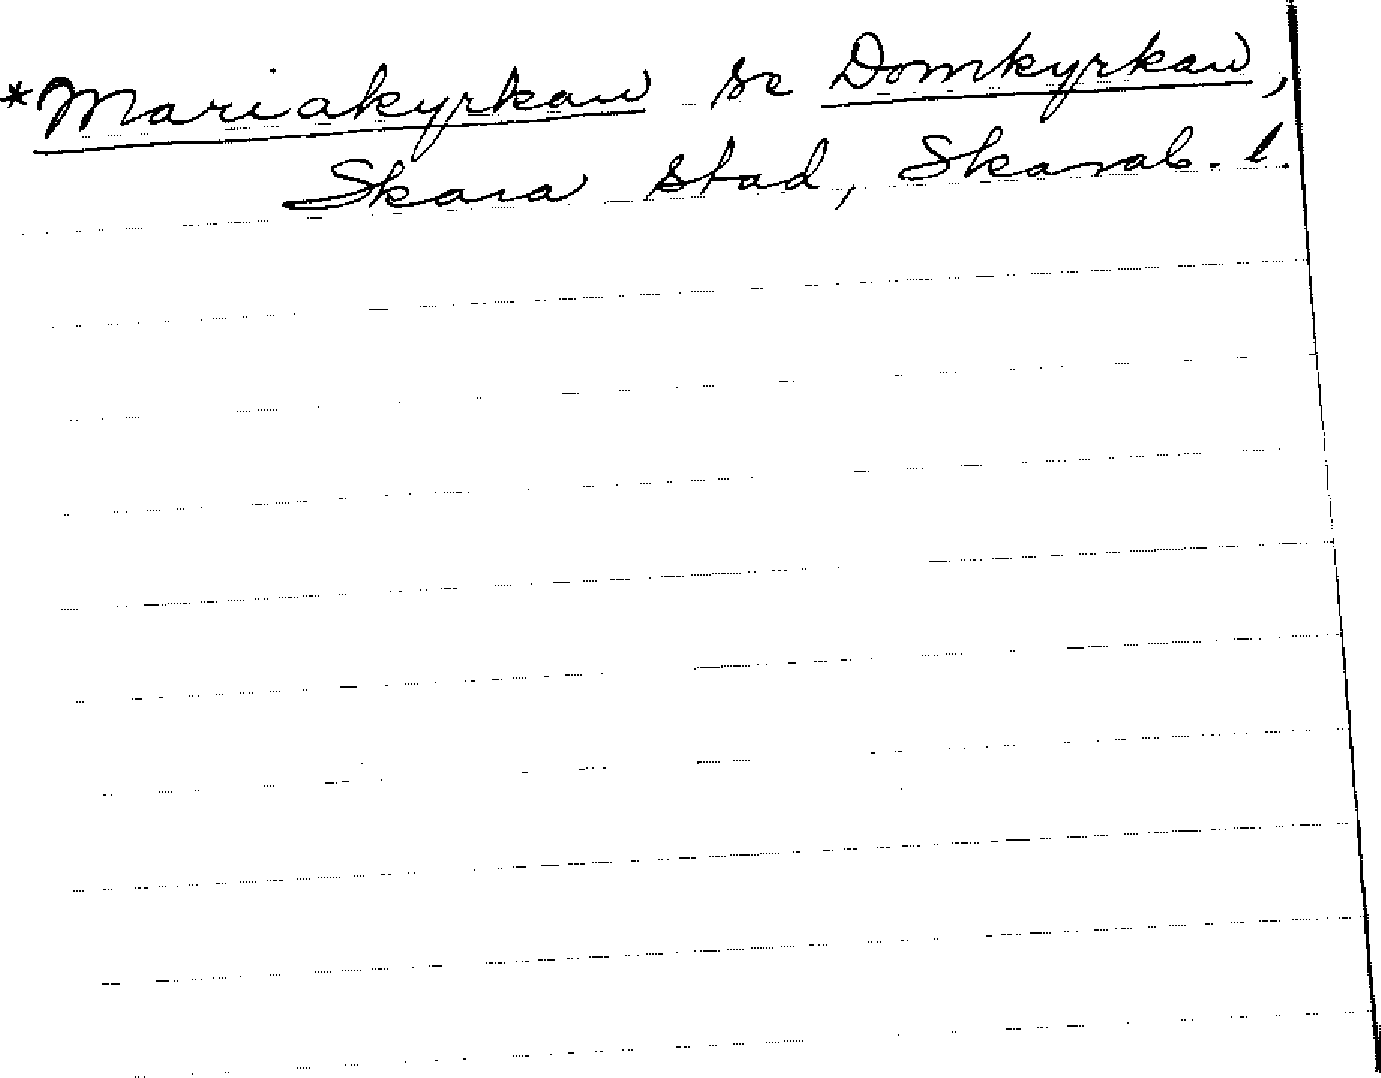 *Mariakyrkan se Domkyrkan,
Skara stad, Skarab. l.